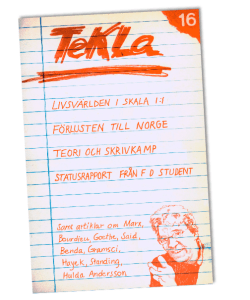 16
TeKLa
LIVSVÄRLDEN I SKALA 1:1
FÖRLUSTEN TILL NORGE
TEORI OCH SKRIVKAMP
STATUSRAPPORT FRÅN F D STUDENT
Samt artiklar om Marx,
Bourdieu, Goethe, Said,
Benda, Gramsci,
Hayek, Standing,
Hulda Andersson